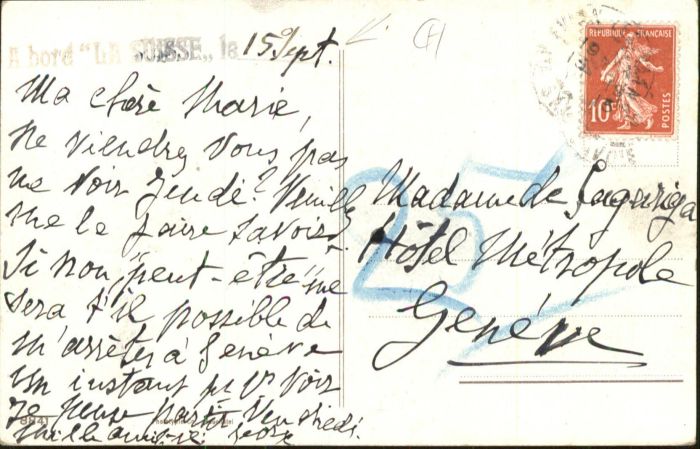 A bord "LA SUISSE,, le 15 Sept.
Ma chère Marie,
Ne viendrez vous pas
me voir Jeudi? Veuillez
me le faire savoir.
Si non, peut-être me
sera t'il possible de
m'arrêter à Genève
un instant pr vs voir
Je pense partir Vendredi.
Mille amitiés
8841
REPUBLIQUE FRANÇAISE
10c
POSTES
25
Madame de
Hôtel Métropole
Genève